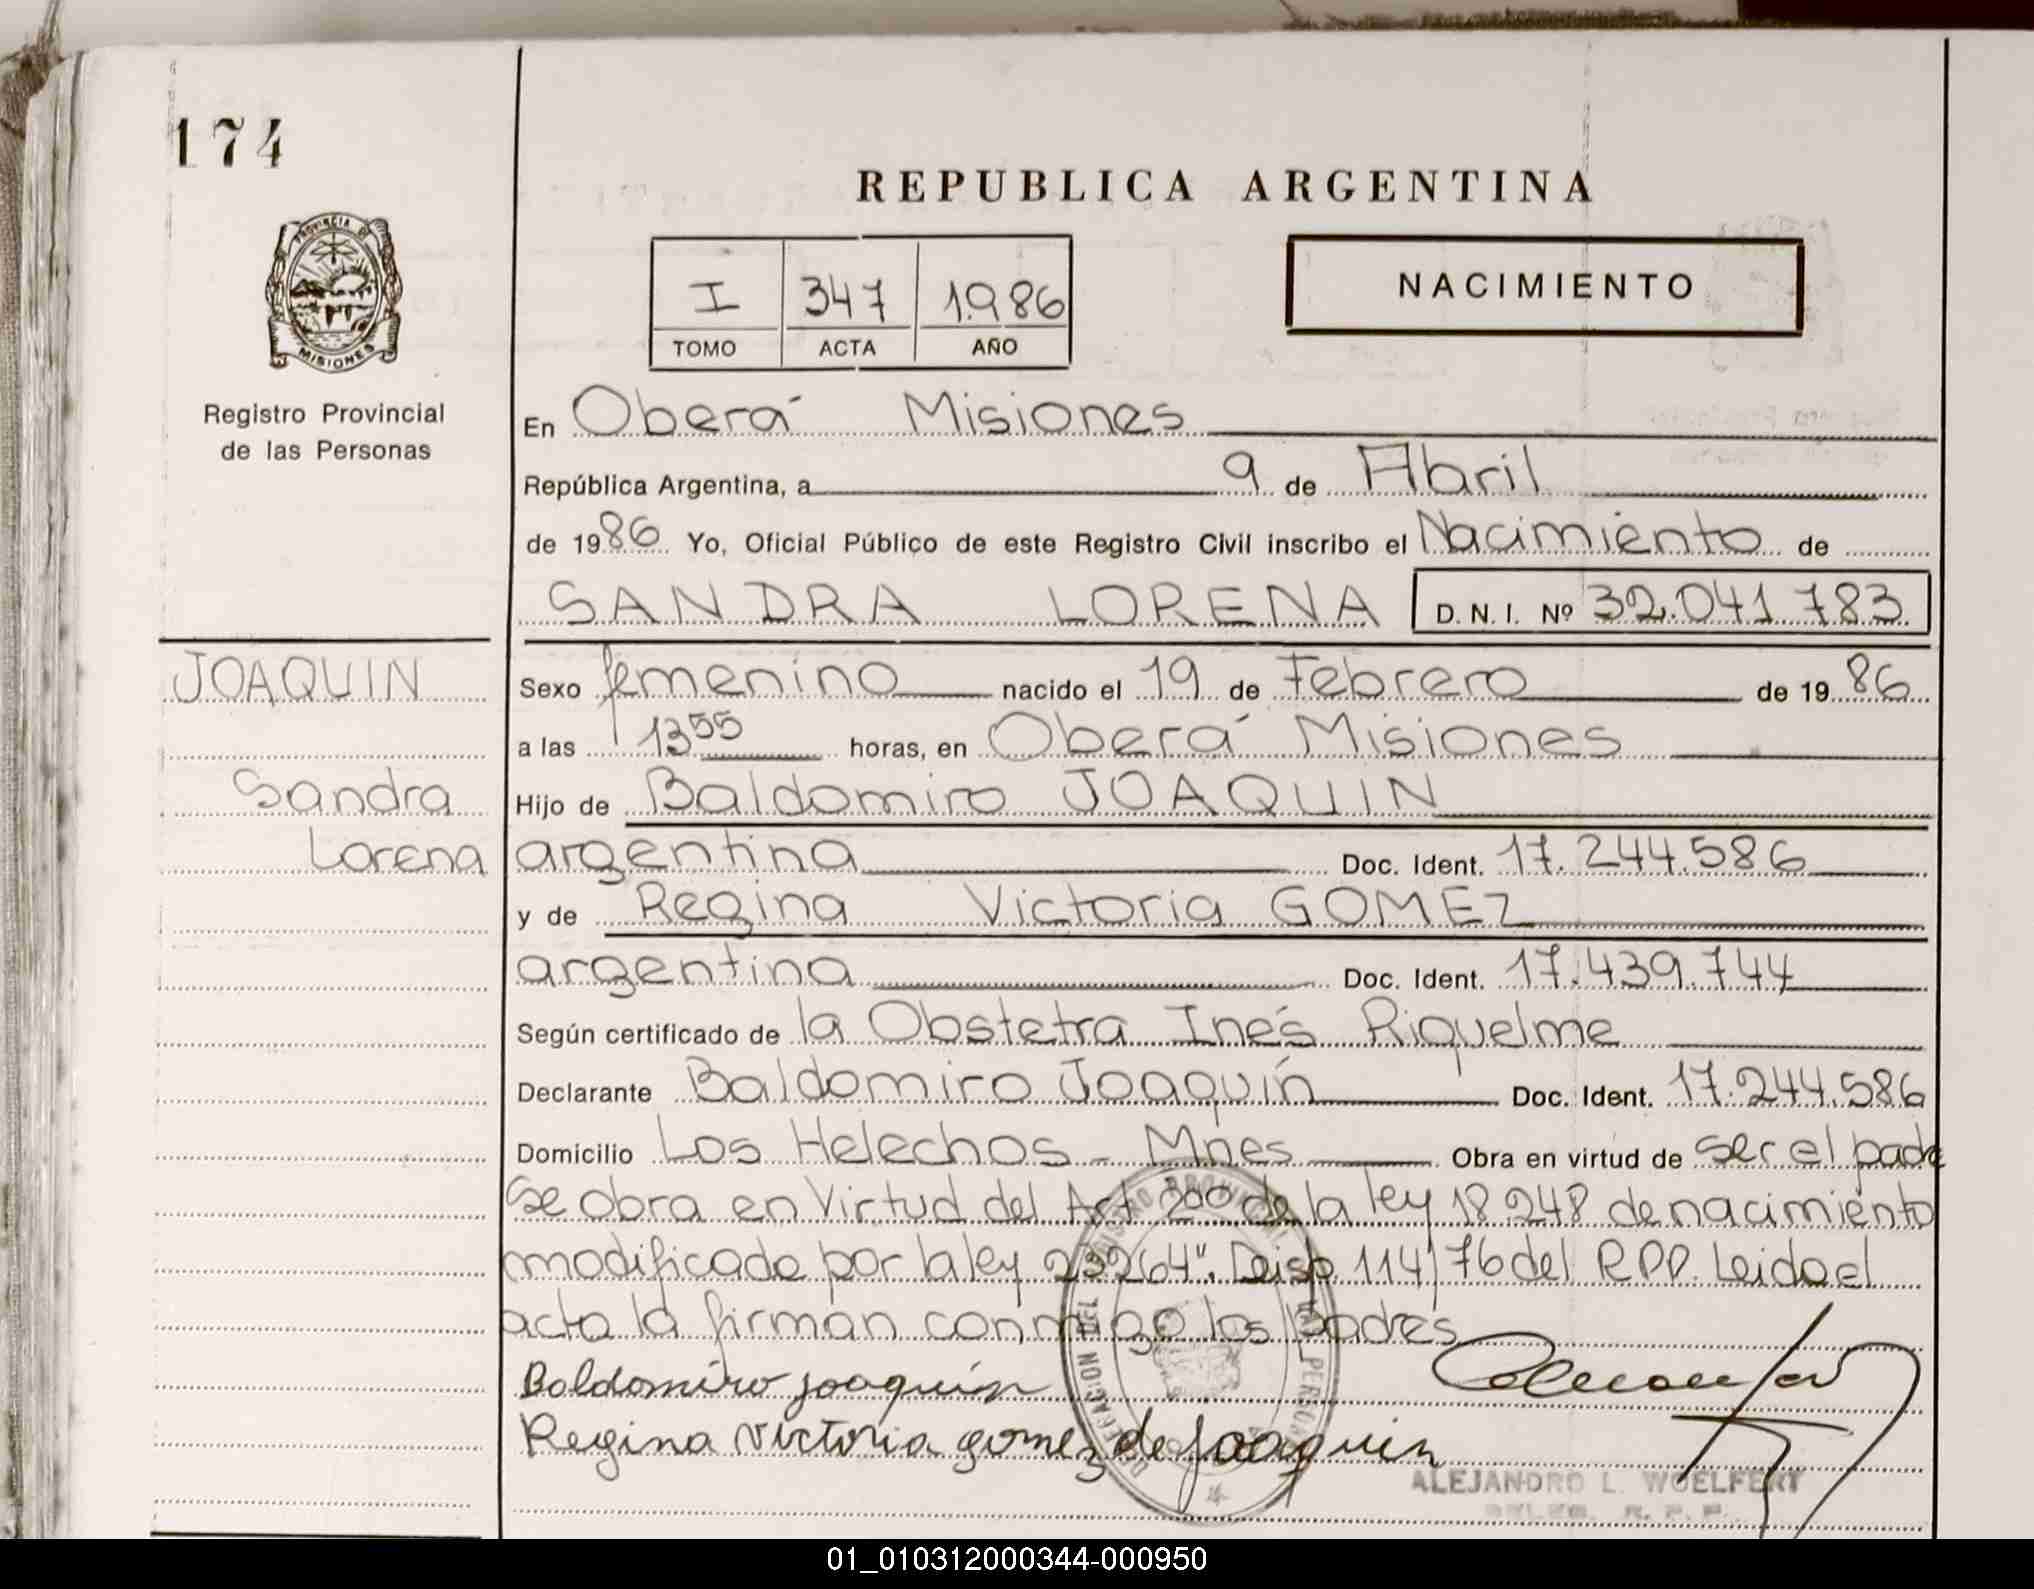 174
REPUBLICA ARGENTINA
PROVINCIA DE
MISIONES
Registro Provincial
de las Personas
I 347 1.986
TOMO ACTA AÑO
NACIMIENTO
En Oberá Misiones
República Argentina, a 9 de Abril
de 1986 Yo, Oficial Público de este Registro Civil inscribo el Nacimiento de
SANDRA LORENA D. N. I. Nº 32.041.783
JOAQUIN
Sandra
Lorena
Sexo femenino nacido el 19 de Febrero de 1986
a las 13 55 horas, en Oberá Misiones
Hijo de Baldomiro JOAQUIN
argentina Doc. Ident. 17.244.586
y de Regina Victoria GOMEZ
argentina Doc. Ident. 17.439.744
Según certificado de la Obstetra Inés Riquelme
Declarante Baldomiro Joaquín Doc. Ident. 17.244.586
Domicilio Los Helechos - Mnes Obra en virtud de ser el padre
Se obra en Virtud del Art 2do de la ley 18.248 de nacimiento
modificado por la ley 23264". Disp. 114/76 del R.P.P. Leida el
acta la firman conmigo los padres
Baldomiro Joaquín
Regina Victoria gomez de Joaquin
ALEJANDRO L. WOELFERT
R. P. P.
01_010312000344-000950